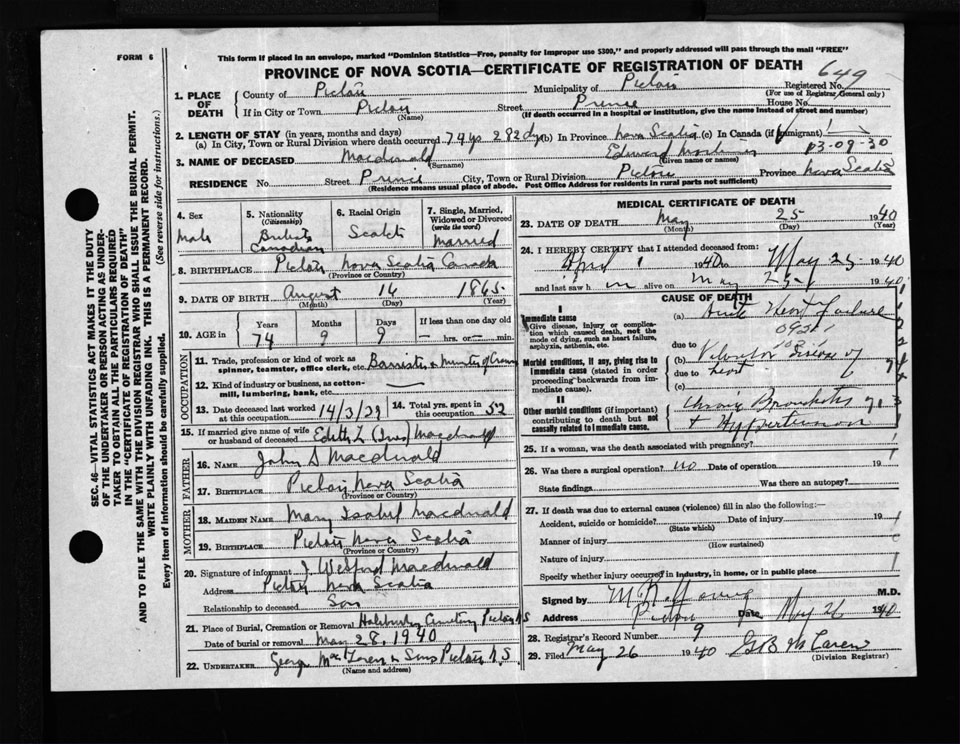 FORM 6
This form if placed in an envelope, marked "Dominion Statistics—Free, penalty for improper use $300," and properly addressed will pass through the mail "FREE"
PROVINCE OF NOVA SCOTIA—CERTIFICATE OF REGISTRATION OF DEATH
649
1. PLACE OF DEATH
County of Pictou
Municipality of Pictou
Registered No.
(For use of Registrar General only)
If in City or Town Pictou
(Name)
Street Prince
House No.
(If death occurred in a hospital or institution, give the name instead of street and number)
2. LENGTH OF STAY (in years, months and days)
(a) In City, Town or Rural Division where death occurred 74 yrs 282 dys (b) In Province Nova Scotia (c) In Canada (if immigrant)
03-09-30
3. NAME OF DECEASED Macdonald Edward
(Surname) (Given name or names)
RESIDENCE No. Street Prince City, Town or Rural Division Pictou Province Nova Scotia
(Residence means usual place of abode. Post Office Address for residents in rural parts not sufficient)
4. Sex
Male
5. Nationality
(Citizenship)
Canadian
6. Racial Origin
Scotch
7. Single, Married, Widowed or Divorced
(write the word)
Married
8. BIRTHPLACE Pictou Nova Scotia Canada
(Province or Country)
9. DATE OF BIRTH August 16 1865
(Month) (Day) (Year)
10. AGE in
Years Months Days If less than one day old
74 9 9 hrs. or min.
OCCUPATION
11. Trade, profession or kind of work as spinner, teamster, office clerk, etc. Barrister
12. Kind of industry or business, as cotton-mill, lumbering, bank, etc.
13. Date deceased last worked at this occupation 14/3/39
14. Total yrs. spent in this occupation 52
15. If married give name of wife or husband of deceased Edith L (Ives) Macdonald
FATHER
16. NAME John S Macdonald
17. BIRTHPLACE Pictou Nova Scotia
(Province or Country)
MOTHER
18. MAIDEN NAME Mary Isabel Macdonald
19. BIRTHPLACE Pictou Nova Scotia
(Province or Country)
20. Signature of informant J. Macdonald
Address Pictou Nova Scotia
Relationship to deceased Son
21. Place of Burial, Cremation or Removal Haliburton Cemetery Pictou NS
Date of burial or removal May 28, 1940
22. UNDERTAKER George MacLaren & Sons Pictou N.S
(Name and address)
MEDICAL CERTIFICATE OF DEATH
23. DATE OF DEATH May 25 1940
(Month) (Day) (Year)
24. I HEREBY CERTIFY that I attended deceased from:
April 1 1940 to May 25 1940
and last saw him alive on May 25 1940
CAUSE OF DEATH
Immediate cause
Give disease, injury or complication which caused death, not the mode of dying, such as heart failure, asphyxia, asthenia, etc.
(a) Heart Failure
due to
Morbid conditions, if any, giving rise to immediate cause (stated in order proceeding backwards from immediate cause).
(b) Valvular Disease of
due to heart
(c)
II
Other morbid conditions (if important) contributing to death but not causally related to immediate cause.
Chronic Bronchitis
+ Hypertension
25. If a woman, was the death associated with pregnancy?
26. Was there a surgical operation? no Date of operation 19
State findings Was there an autopsy?
27. If death was due to external causes (violence) fill in also the following:—
Accident, suicide or homicide? Date of injury 19
(State which)
Manner of injury
(How sustained)
Nature of injury
Specify whether injury occurred in industry, in home, or in public place
Signed by M.D.
Address Pictou Date May 26 1940
28. Registrar's Record Number 9
29. Filed May 26 1940 G B McLaren
(Division Registrar)
SEC. 46—VITAL STATISTICS ACT MAKES IT THE DUTY OF THE UNDERTAKER OR PERSON ACTING AS UNDERTAKER TO OBTAIN ALL THE PARTICULARS REQUIRED IN THE "CERTIFICATE OF REGISTRATION OF DEATH" AND TO FILE THE SAME WITH THE DIVISION REGISTRAR WHO SHALL ISSUE THE BURIAL PERMIT.
WRITE PLAINLY WITH UNFADING INK. THIS IS A PERMANENT RECORD.
Every item of information should be carefully supplied. (See reverse side for instructions.)